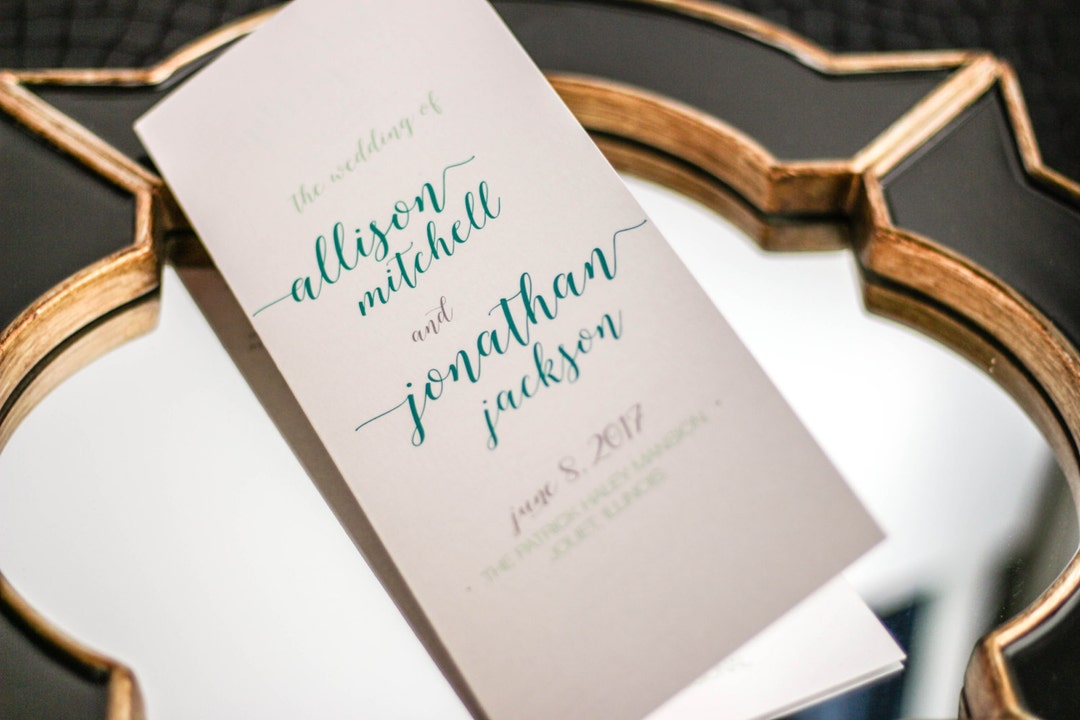 the wedding of
allison
mitchell
and
jonathan
jackson
june 8, 2017
THE PATRICK HALEY MANSION
JOLIET, ILLINOIS